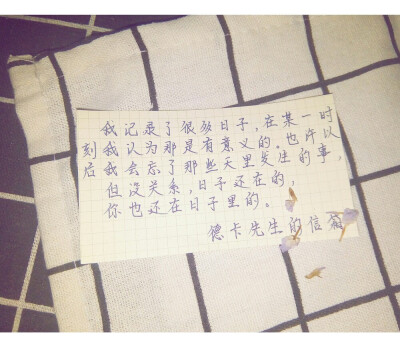 我记录了很多日子,在某一时
刻我认为那是有意义的。也许以
后我会忘了那些天里发生的事,
但没关系,日子还在的,
你也还在日子里的。
德卡先生的信箱